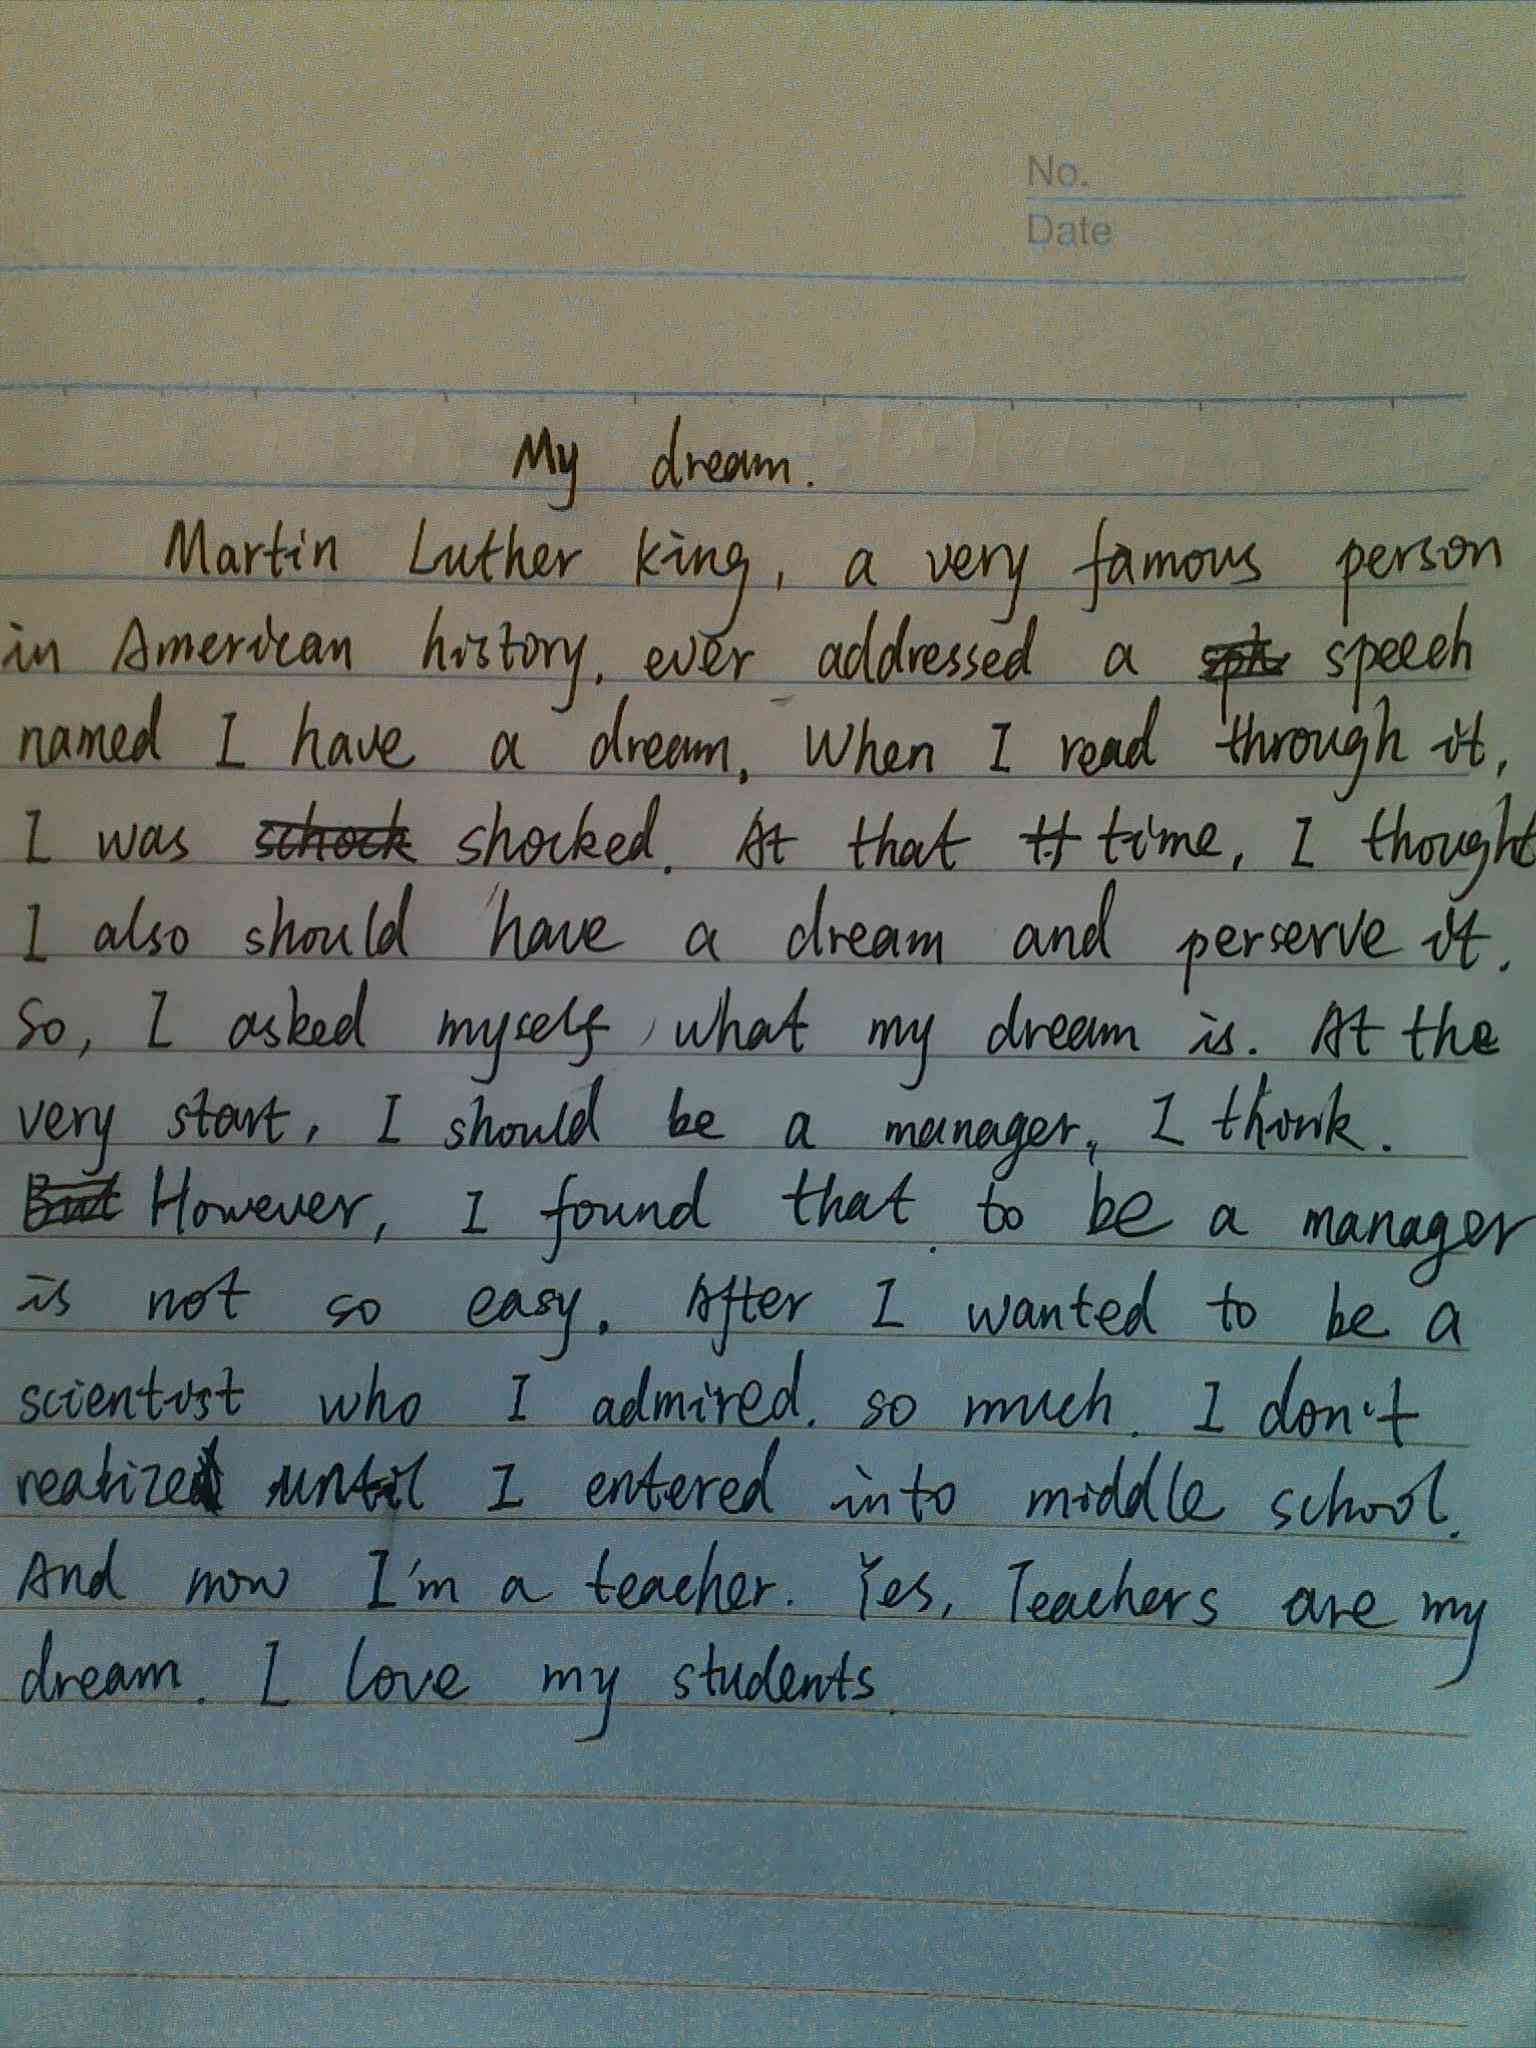 No.
Date
My dream.
Martin Luther King, a very famous person
in American history, ever addressed a speech
named I have a dream. When I read through it,
I was schock shocked. At that tt time, I thought
I also should have a dream and perserve it.
So, I asked myself, what my dream is. At the
very start, I should be a manager, I think.
But However, I found that to be a manager
is not so easy. After I wanted to be a
scientist who I admired. so much. I don't
realized until I entered into middle school.
And now I'm a teacher. Yes, Teachers are my
dream. I love my students.